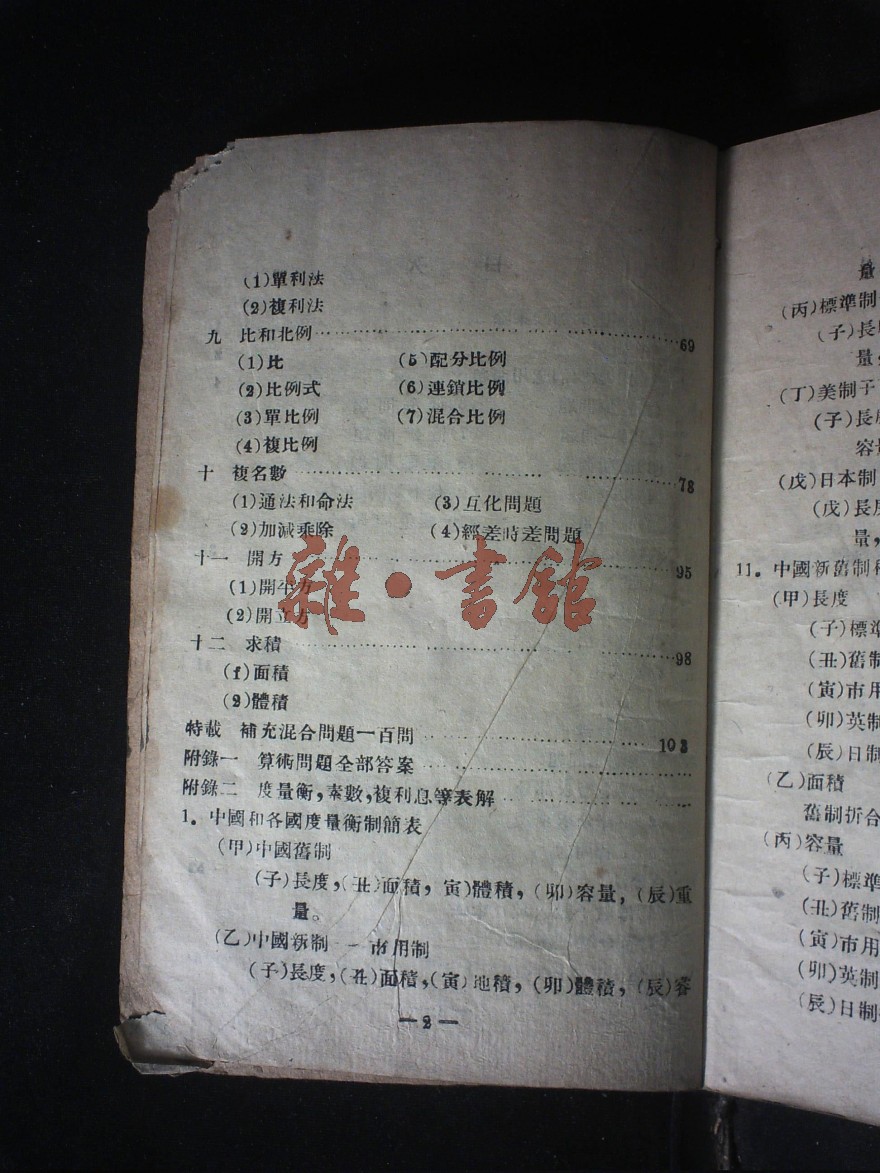 (1)單利法
(2)複利法
九 比和北例……69
(1)比 (5)配分比例
(2)比例式 (6)連鎖比例
(3)單比例 (7)混合比例
(4)複比例
十 複名數……78
(1)通法和命法 (3)互化問題
(2)加减乘除 (4)經差時差問題
十一 開方……95
(1)開平方
(2)開立方
十二 求積……98
(1)面積
(2)體積
特載 補充混合問題一百問……103
附錄一 算術問題全部答案……
附錄二 度量衡,素數,複利息等表解……
1. 中國和各國度量衡制簡表
(甲)中國舊制
(子)長度,(丑)面積,寅)體積,(卯)容量,(辰)重
量。
(乙)中國新制——市用制
(子)長度,(丑)面積,(寅)地積,(卯)體積,(辰)容
—2—
量
(丙)標準制
(子)長
量,
(丁)美制子
(子)長
容
(戊)日本制
(戊)長
量,
11. 中國新舊制
(甲)長度
(子)標
(丑)舊
(寅)市用
(卯)英制
(辰)日制
(乙)面積
舊制折合
(丙)容量
(子)標準
(丑)舊制
(寅)市用
(卯)英制
(辰)日制
雜·書館